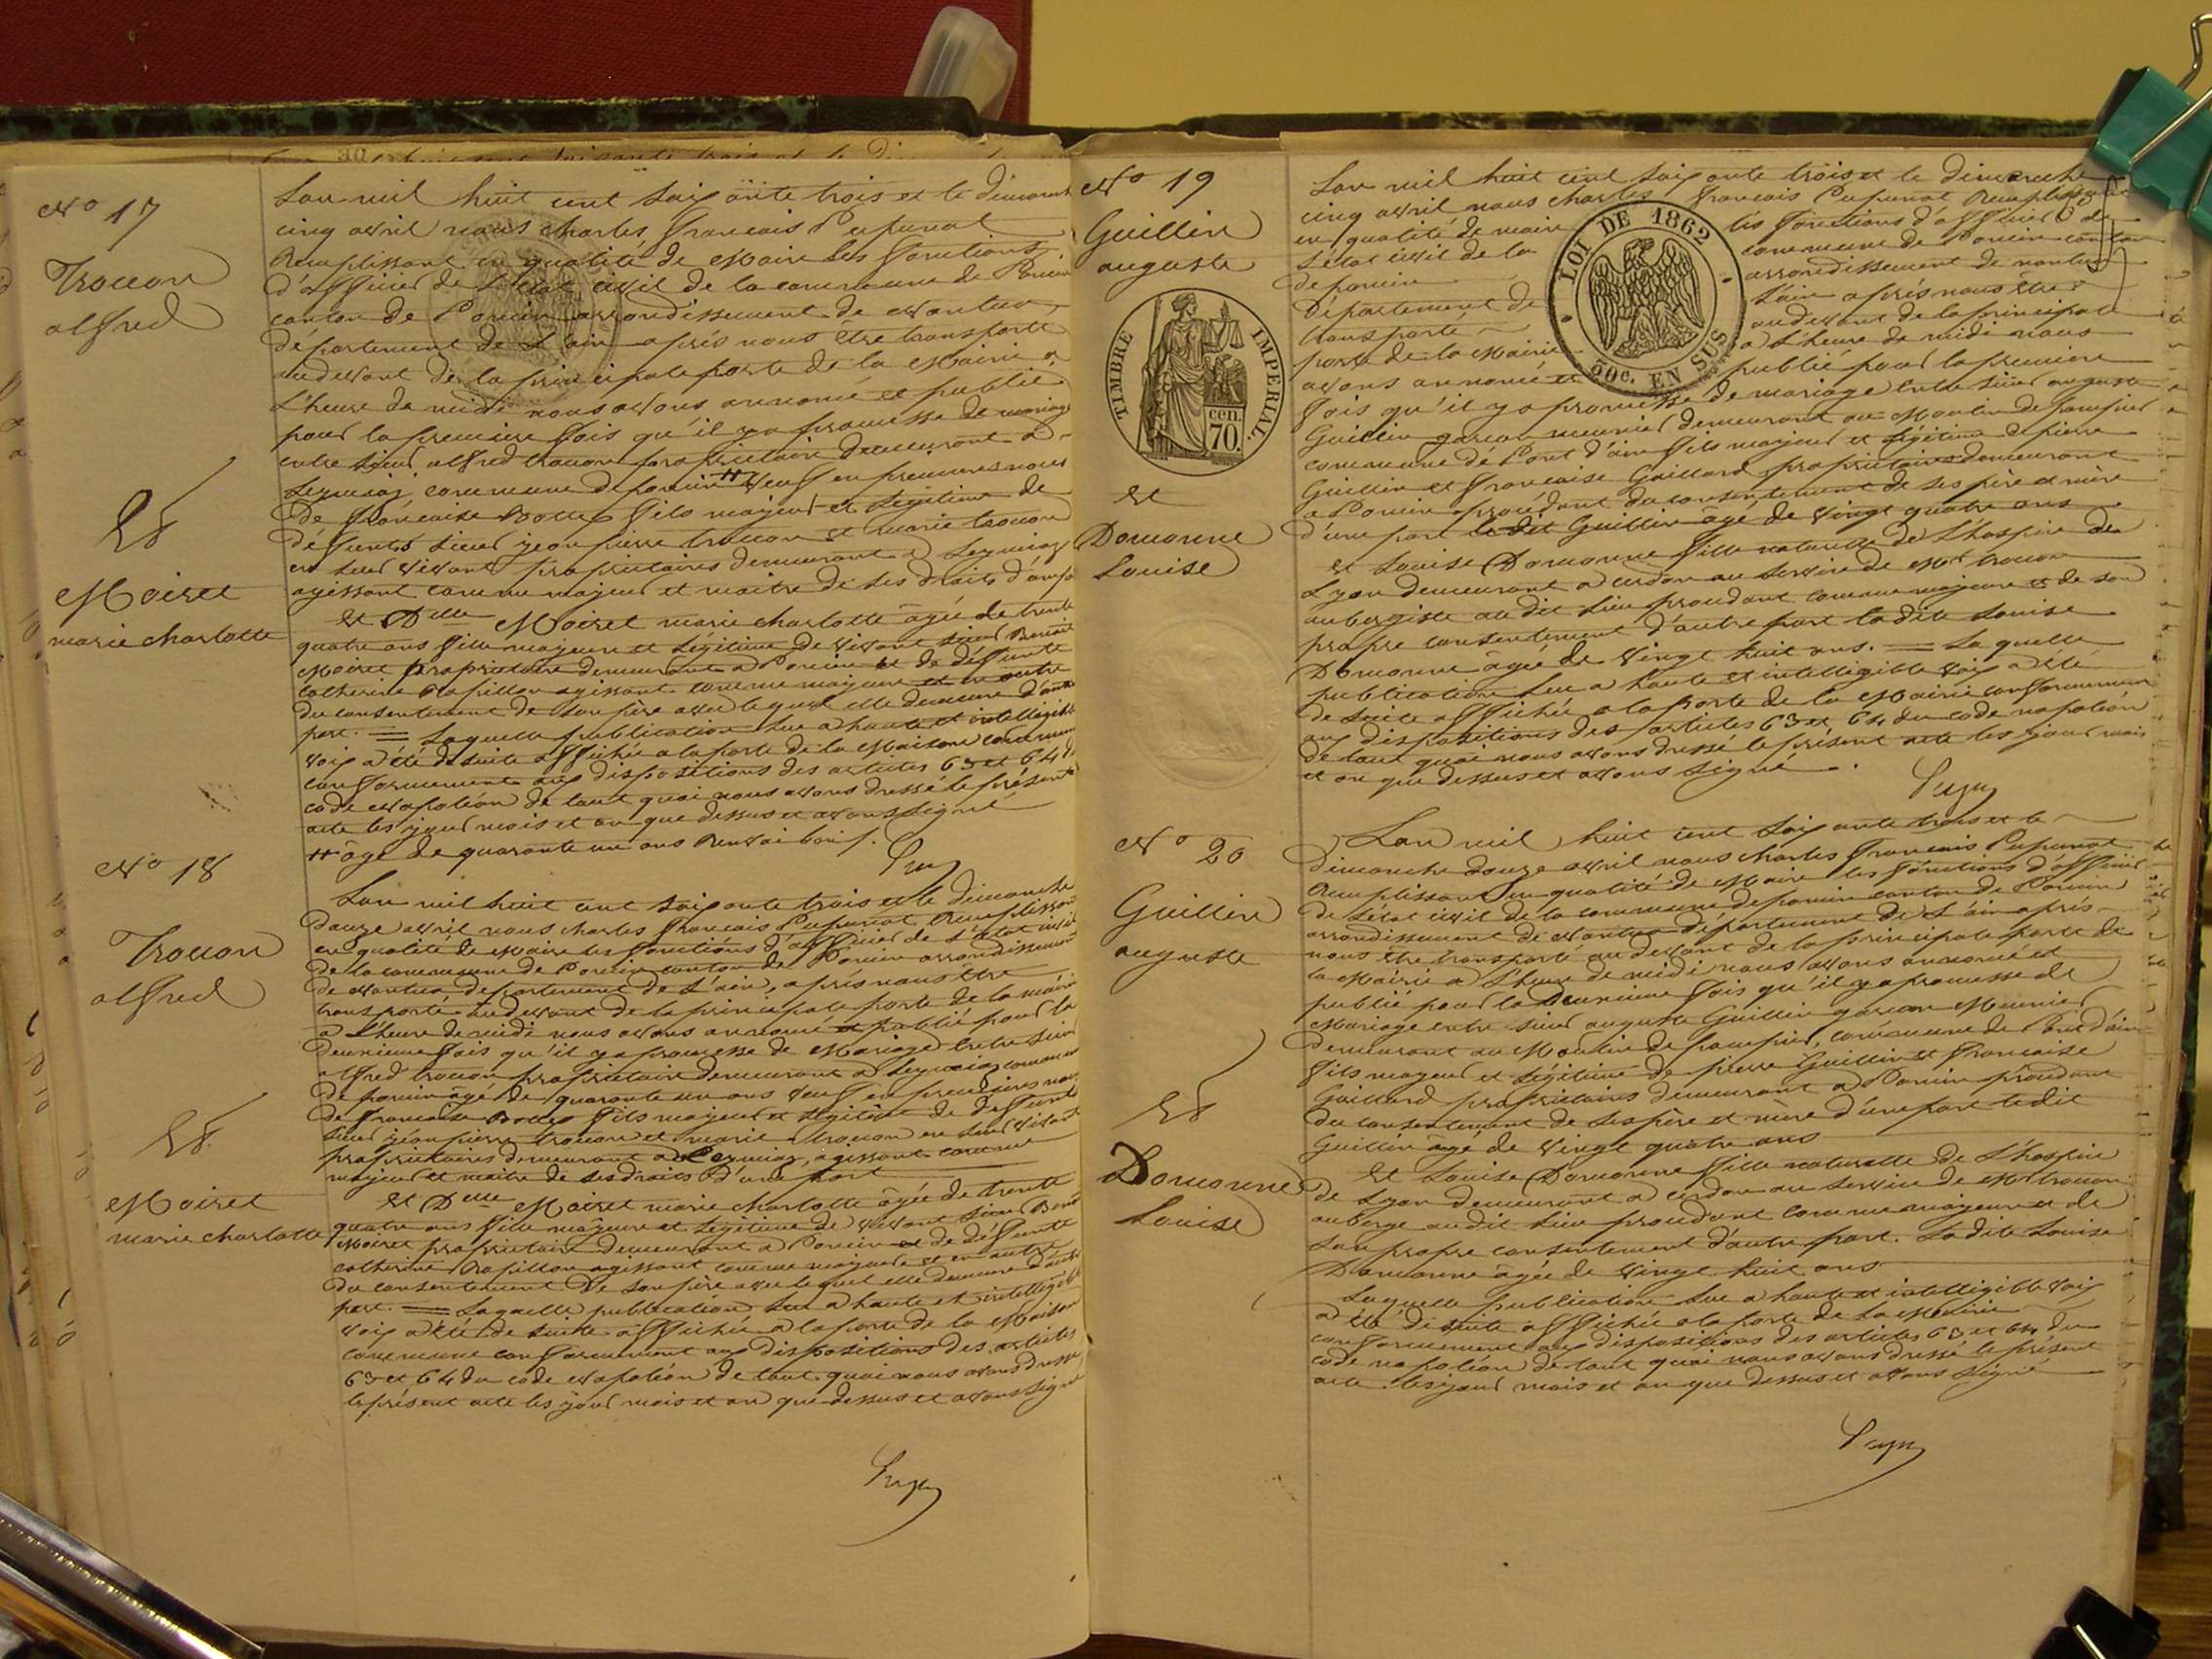 No 17
Trouon
alfred
Et
Moiret
marie charlotte
L'an mil huit cent soixante trois et le dimanche
cinq avril nous charles francois Pupunat
Remplissant en qualité de Maire les fonctions
d'officier de L'état civil de la commune de Poncin
canton de Poncin arrondissement de Nantua
département de L'ain après nous être transporté
au devant de la principale porte de la Mairie a
L'heure de midi nous avons annoncé et publié
pour la premiere fois qu'il y a promesse de mariage
entre sieur alfred trouon propriétaire demeurant a
Leymiaz commune de poncin # veuf en premieres noces
De francoise Bolley fils majeur et légitime de
défunts sieur jean pierre trouon et marie trouon
en leur vivant propriétaires demeurant a Leymiaz
agissant comme majeur et maitre de ses droits d'une part
Et Delle Moiret marie charlotte âgée de trente
quatre ans fille majeure et légitime de vivant sieur Benoit
Moiret propriétaire demeurant a Poncin et de défunte
catherine Rapillon agissant comme majeure et en outre
du consentement de son père avec lequel elle demeure d'autre
part. = Laquelle publication lue a haute et intelligible
voix a été de suite affichée a la porte de la Maison commune
conformement aux dispositions des articles 63 et 64 du
code Napoléon de tout quoi nous avons dressé le présent
acte les jour mois et an que dessus et avons signé
# âgé de quarante un ans Renvoi bon /.
No 18
Trouon
alfred
Et
Moiret
marie charlotte
L'an mil huit cent soixante trois et le dimanche
Douze avril nous charles francois Pupunat Remplissant
en qualité de Maire les fonctions d'officier de L'état civil
de la commune de Poncin canton de Poncin arrondissement
de Nantua département de L'ain, après nous être
transporté au devant de la principale porte de la mairie
a L'heure de midi nous avons annoncé et publié pour la
Deuxieme fois qu'il y a promesse de Mariage Entre sieur
alfred trouon propriétaire demeurant a Leymiaz commune
de poncin âgé de quarante un ans veuf en premieres noces
de francoise Bolley fils majeur et légitime de défunts
sieur jean pierre trouon et marie trouon en leur vivant
propriétaires demeurant a Leymiaz, agissant comme
majeur et maitre de ses droits d'une part
Et Delle Moiret marie charlotte âgée de trente
quatre ans fille majeure et légitime de vivant sieur Benoit
Moiret propriétaire demeurant a Poncin et de défunte
catherine Rapillon agissant comme majeure et en outre
du consentement de son père avec lequel elle demeure d'autre
part. = Laquelle publication lue a haute et intelligible
voix a été de suite affichée a la porte de la Maison
commune conformement aux dispositions des articles
63 et 64 du code Napoléon de tout quoi nous avons dressé
le présent acte les jour mois et an que dessus et avons signé
No 19
Guillin
auguste
TIMBRE IMPERIAL.
cen
70.
Et
Domonne
Louise
L'an mil huit cent soixante trois et le dimanche
cinq avril nous charles francois Pupunat Remplissant
en qualité de maire les fonctions d'officier de
L'état civil de la commune de Poncin canton
de poncin arrondissement de nantua
Département de L'ain après nous être
transporté au devant de la principale
porte de la Mairie a L'heure de midi nous
avons annoncé et publié pour la premiere
LOI DE 1862
50c. EN SUS
fois qu'il y a promesse de mariage Entre sieur auguste
Guillin garcon meunier demeurant au Moulin de pampier
commune de Pont d'ain fils majeur et légitime de pierre
Guillin et francoise Gaillard propriétaires demeurant
a Poncin procédant du consentement de ses père et mère
d'une part le dit Guillin âgé de vingt quatre ans
et Louise Domonne fille naturelle de L'hospice de
Lyon demeurant a cerdon au service de Mr trouon
aubergiste au dit lieu procédant comme majeure et de son
propre consentement d'autre part la dite Louise
Domonne âgée de vingt huit ans. = Laquelle
publication lue a haute et intelligible voix a été
de suite affichée a la porte de la Mairie conformement
aux dispositions des articles 63 et 64 du code napoléon
de tout quoi nous avons dressé le présent acte les jour mois
et an que dessus et avons signé.
No 20
Guillin
auguste
Et
Domonne
Louise
L'an mil huit cent soixante trois et le
dimanche douze avril nous charles francois Pupunat
Remplissant en qualité de Maire les fonctions d'officier
de L'état civil de la commune de poncin canton de Poncin
arrondissement de Nantua département de L'ain après
nous être transporté au devant de la principale porte de
la Mairie a L'heure de midi nous avons annoncé et
publié pour la Deuxieme fois qu'il y a promesse de
Mariage entre sieur auguste Guillin garcon Meunier
demeurant au Moulin de pampier, commune de Pont d'ain
fils majeur et légitime de pierre Guillin et francoise
Gaillard propriétaires demeurant a Poncin procédant
du consentement de ses père et mere d'une part le dit
Guillin âgé de vingt quatre ans
Et Louise Domonne fille naturelle de L'hospice
de Lyon demeurant a cerdon au service de Mr trouon
auberge au dit lieu procédant comme majeure et de
son propre consentement d'autre part. la dite Louise
Domonne âgée de vingt huit ans
Laquelle publication lue a haute et intelligible voix
a été de suite affichée a la porte de la Mairie
conformement aux dispositions des articles 63 et 64 du
code napoléon de tout quoi nous avons dressé le présent
acte les jour mois et an que dessus et avons signé